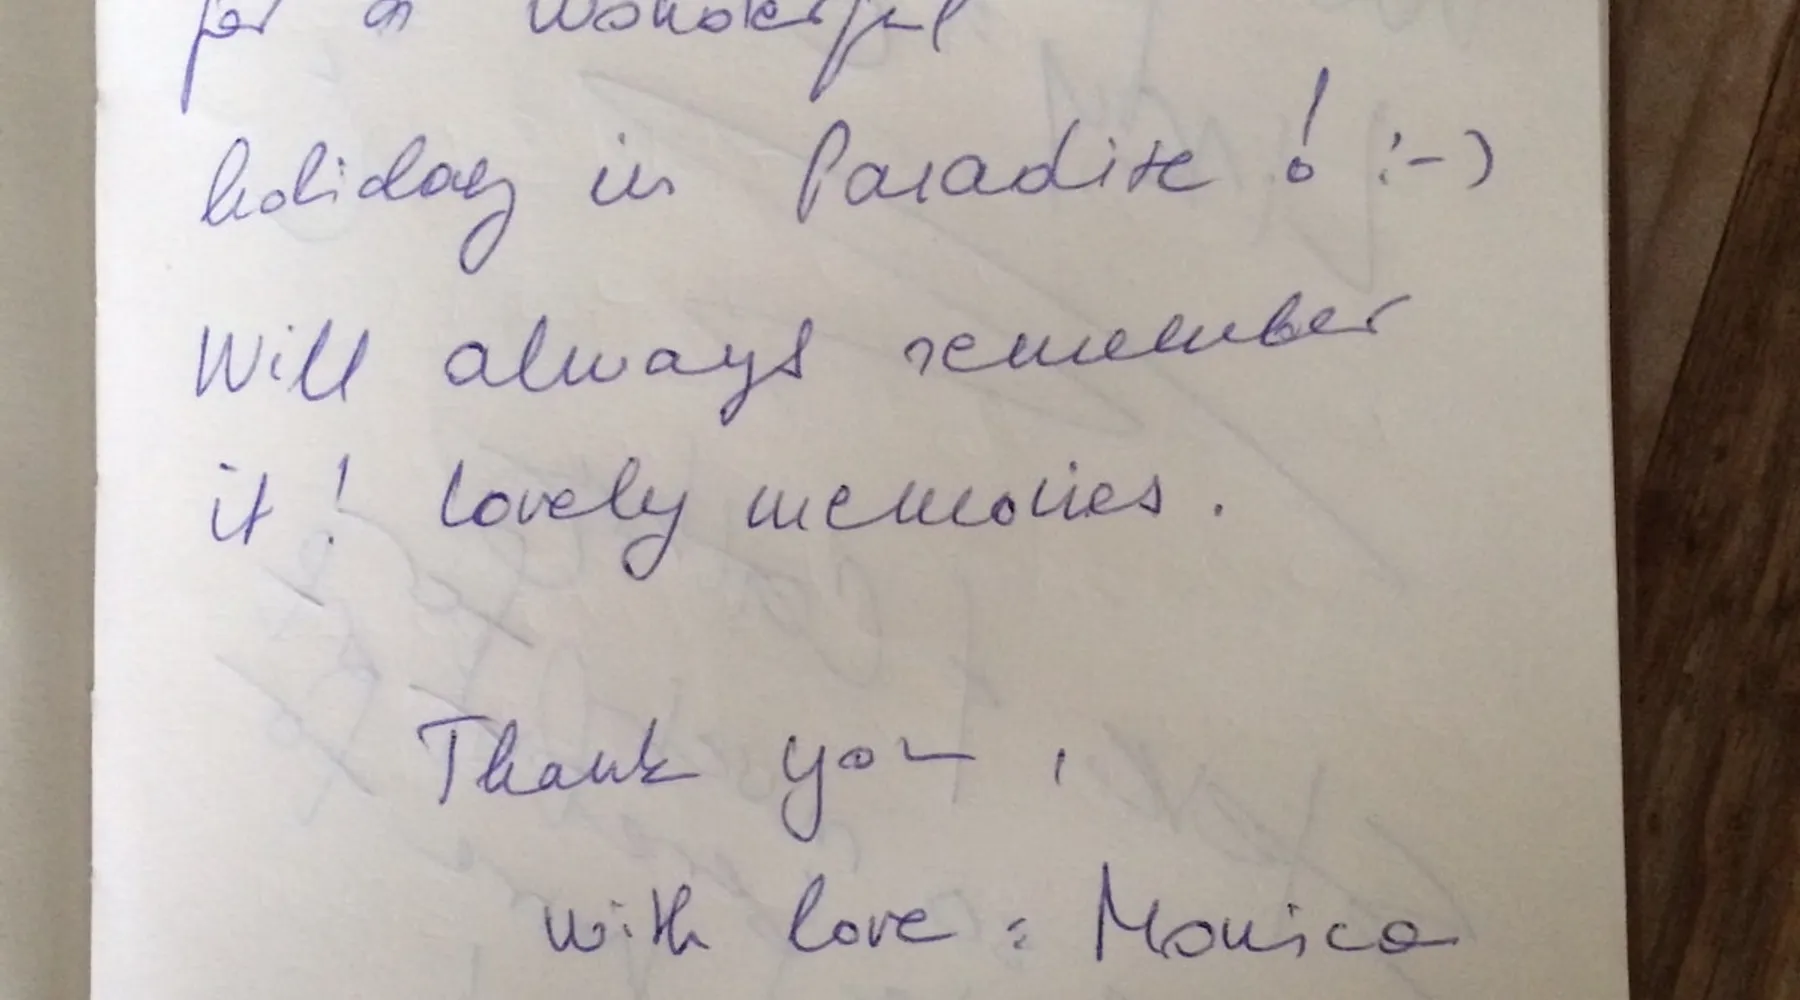 for a wonderful
holiday in Paradise ! :-)
Will always remember
it ! Lovely memories .
Thank you ,
with love : Monica